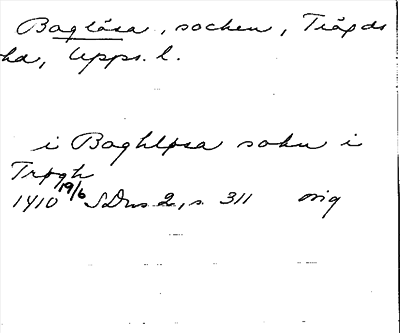 Boglösa, socken, Trögds
hd, Upps. l.
i Boghløsa sokn i
Trøgh
1410 19/6 SDns 2, s. 311 orig